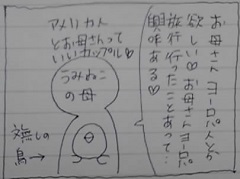 お母さんヨーロピアング
欲しい♡お母さんヨーロパ
旅行行ったことあって…
興味ある♡
アメリカ人
とお母さんって
いいカップル♡
うみねこ
の母
無しの
鳥→